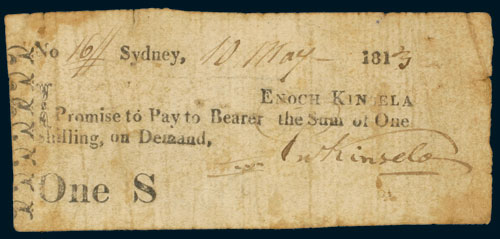 No 16 Sydney, 10 May 1813
ENOCH KINSELA
I Promise to Pay to Bearer the Sum of One
Shilling, on Demand,
Kinsela
One S